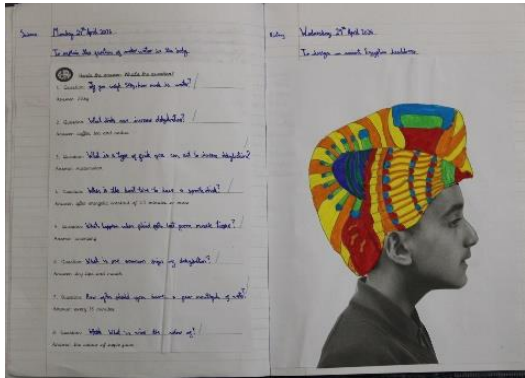 Science Monday 27th April 2020
To explain the function of water in the body.
Here's the answer. What's the question?
1. Question:
Answer:
2. Question: What drinks can increase dehydration?
Answer: coffee, tea and sodas
3. Question: What is a type of fruit you can eat to increase hydration?
Answer: watermelon
4. Question: When is the best time to have a sports drink?
Answer: after energetic workout of minutes or more
5. Question: What happens when fluid gets lost from muscle tissues?
Answer:
6. Question: What is one common sign of dehydration?
Answer: dry lips and mouth
7. Question: How often should you have a few mouthfuls of water?
Answer: every 15 minutes
8. Question: What is the colour of
Answer: the colour of apple juice
History Wednesday 29th April 2020
To design an ancient Egyptian headdress.